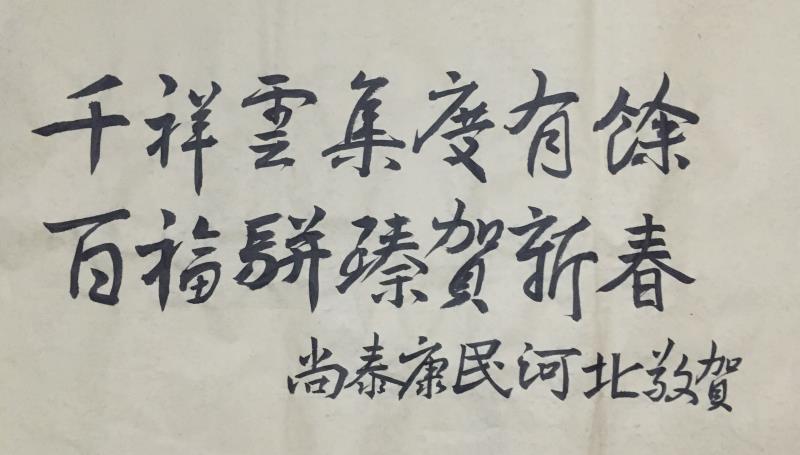 千祥雲集度有餘
百福駢臻賀新春
尚泰康民河北敬賀